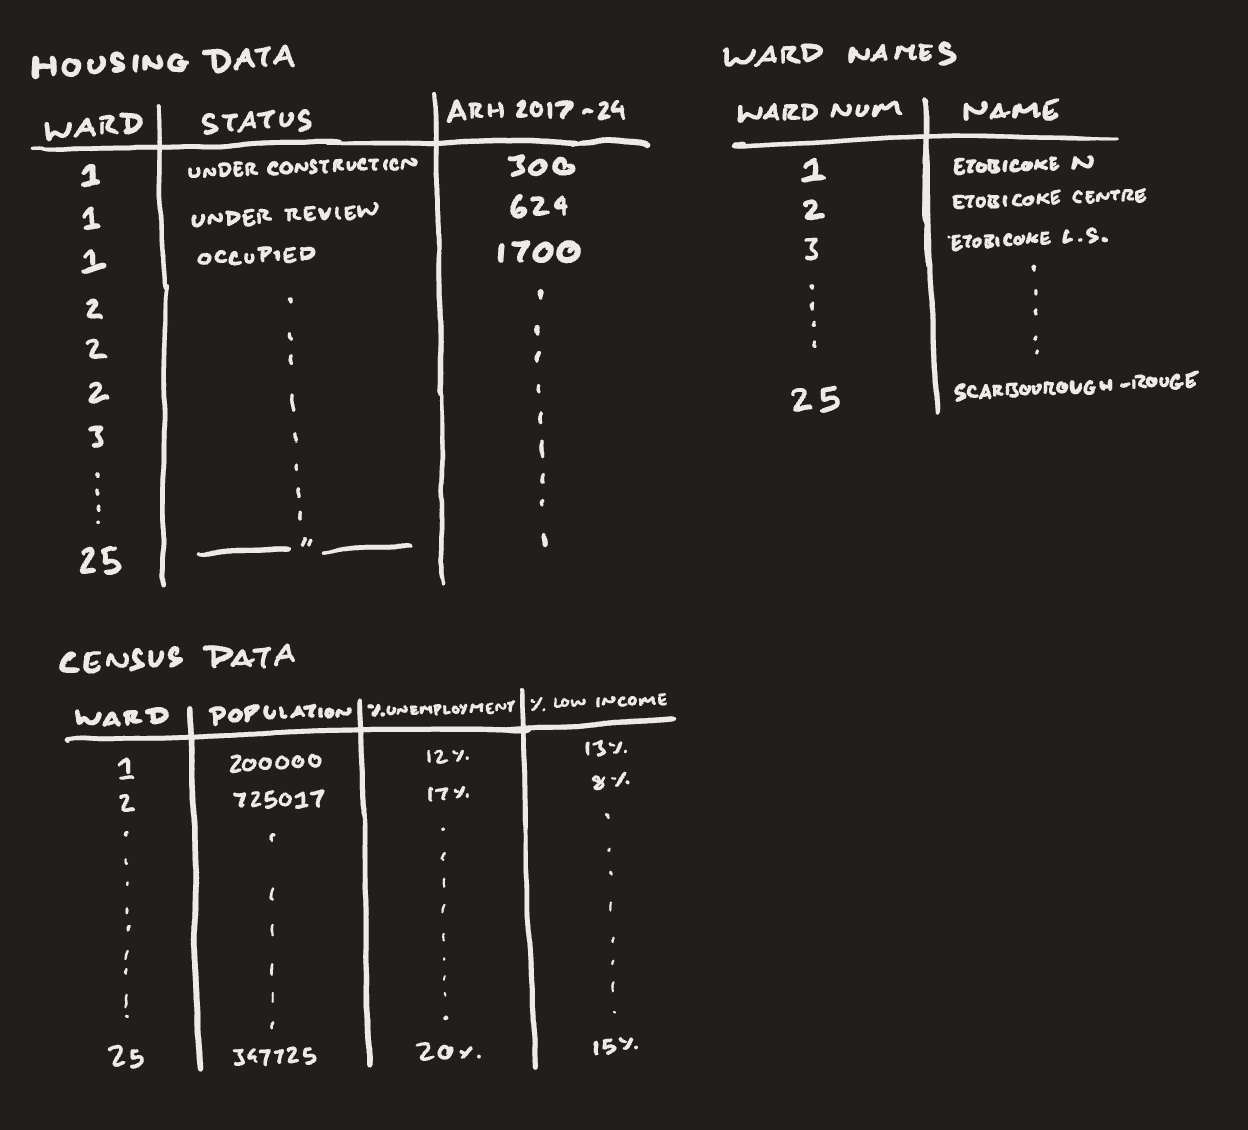 HOUSING DATA
WARD STATUS ARH 2017-24
1 UNDER CONSTRUCTION 300
1 UNDER REVIEW 624
1 OCCUPIED 1700
2
2
2
3
25 "
WARD NAMES
WARD NUM NAME
1 ETOBICOKE N
2 ETOBICOKE CENTRE
3 ETOBICOKE L.S.
25 SCARBOUROUGH-ROUGE
CENSUS DATA
WARD POPULATION % UNEMPLOYMENT % LOW INCOME
1 200000 12% 13%
2 725017 17% 8%
25 347725 20% 15%